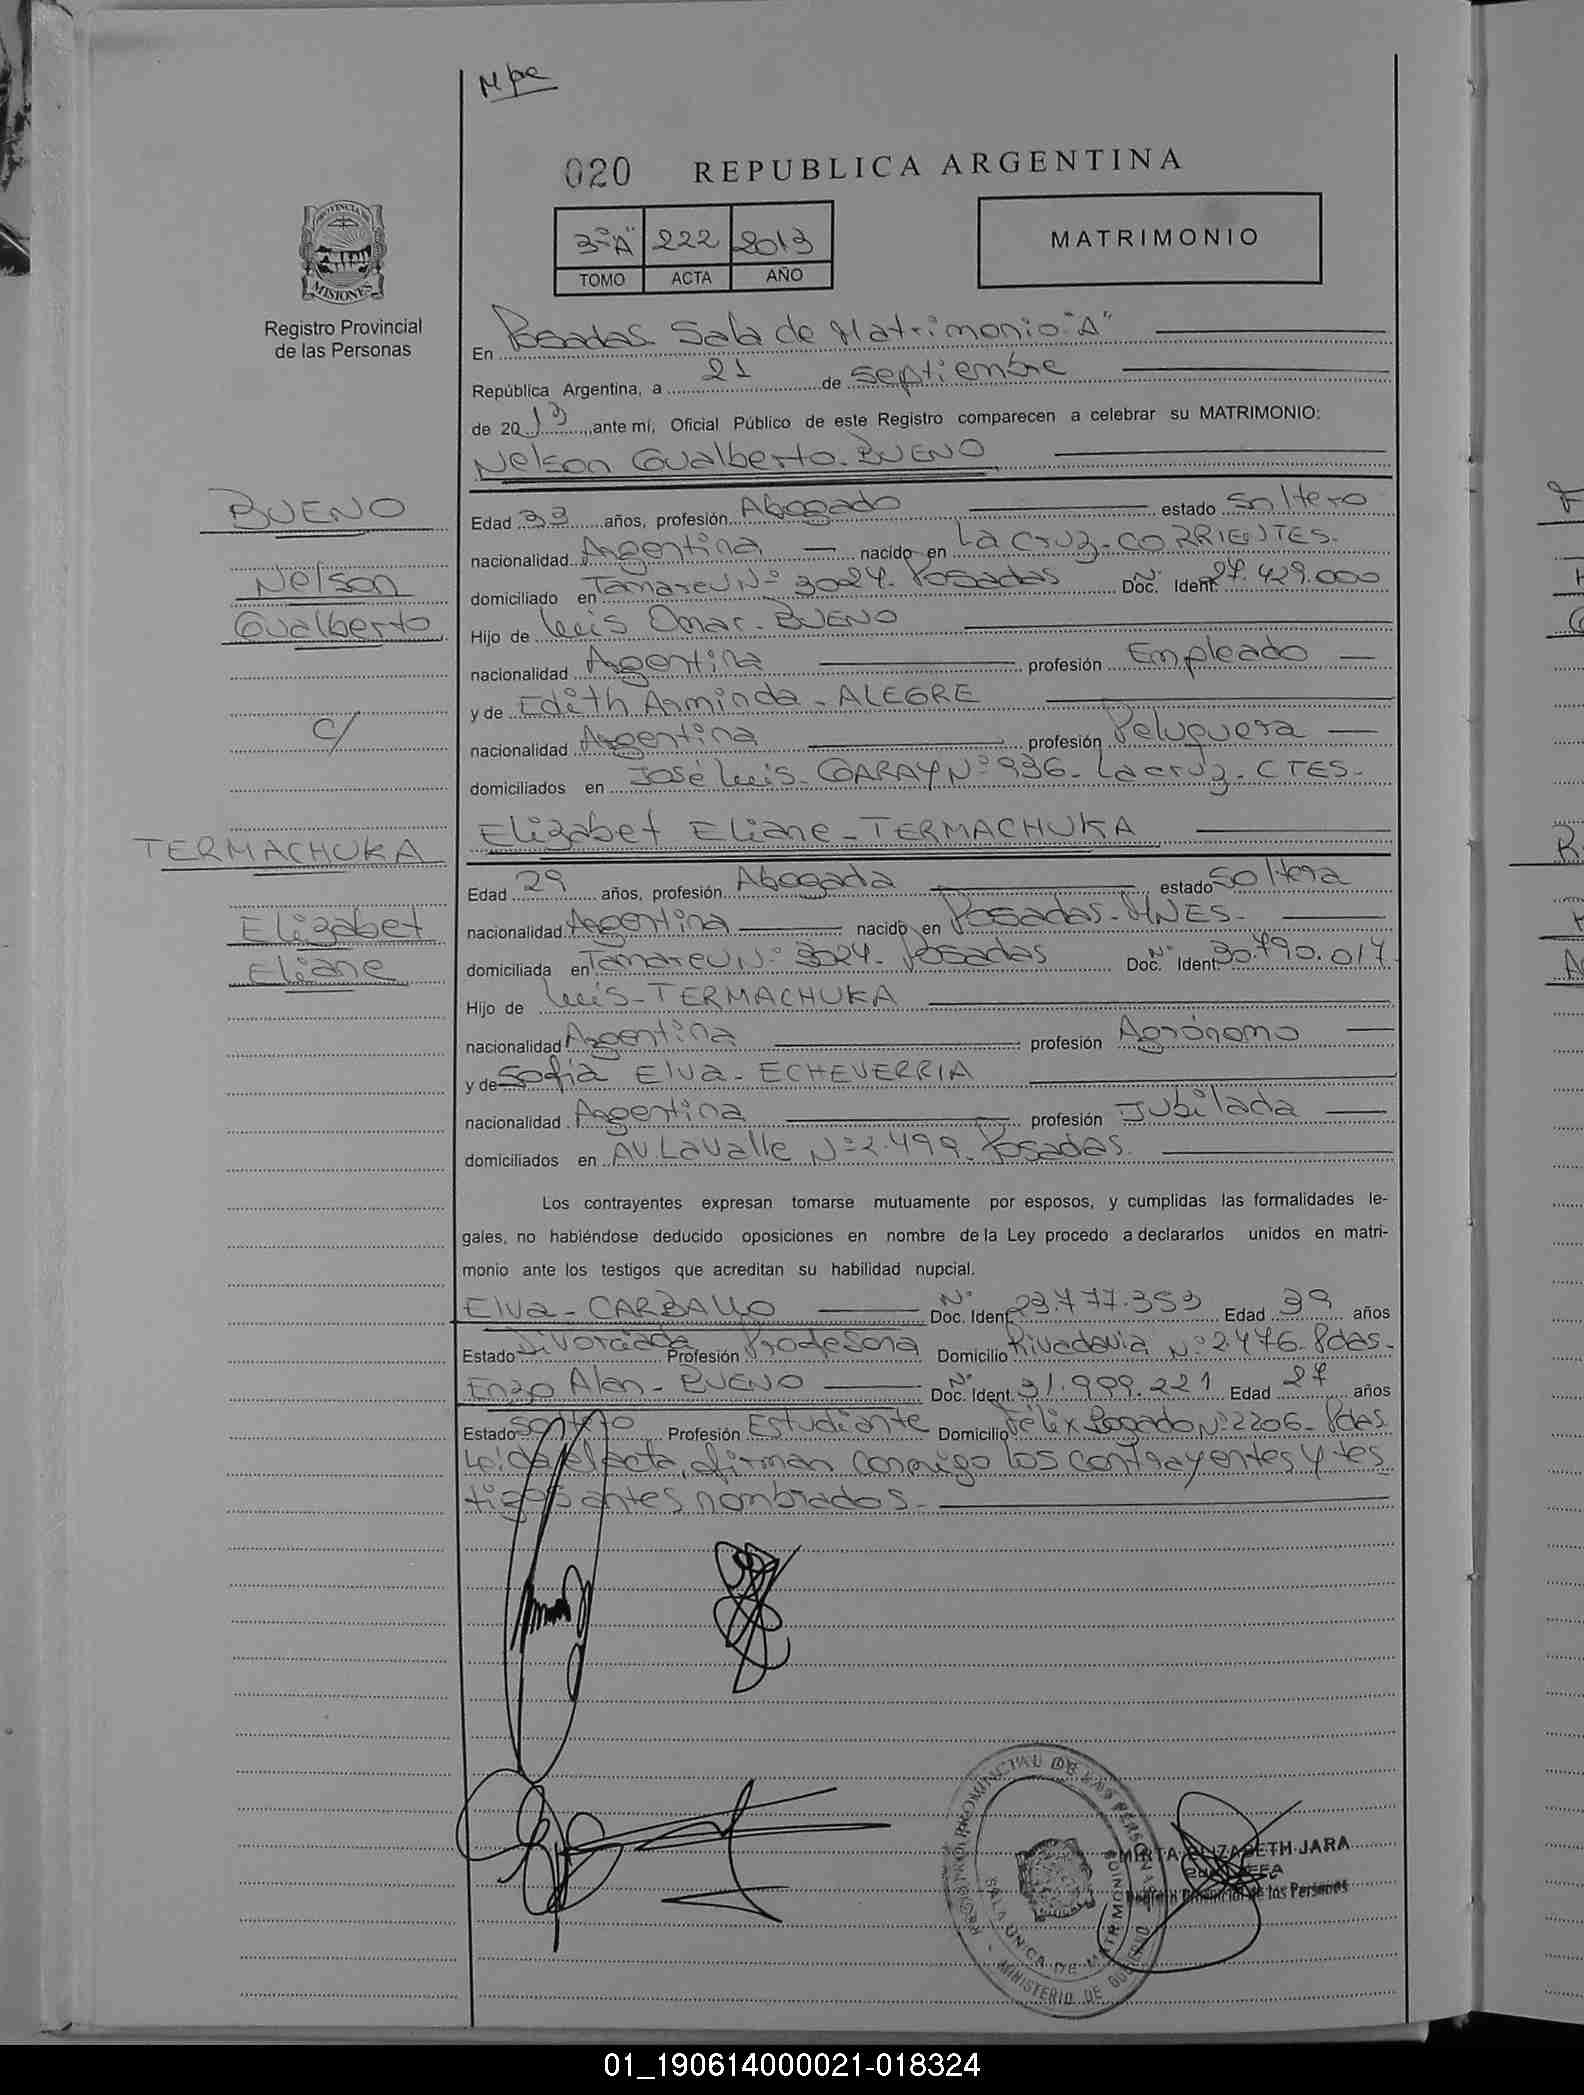 Mpe
020 REPUBLICA ARGENTINA
3º"A" 222 2013
TOMO ACTA AÑO
MATRIMONIO
PROVINCIA DE
MISIONES
Registro Provincial
de las Personas
En Posadas. Sala de Matrimonio "A"
República Argentina, a 21 de septiembre
de 2013, ante mí, Oficial Público de este Registro comparecen a celebrar su MATRIMONIO:
Nelson Gualberto. BUENO
BUENO
Nelson
Gualberto
C/
TERMACHUKA
Elizabet
Eliane
Edad 33 años, profesión Abogado estado soltero
nacionalidad Argentina — nacido en La Cruz-CORRIENTES-
domiciliado en Tamareu Nº 3024. Posadas Doc. Nº Ident. 27.429.000
Hijo de Luis Omar. BUENO
nacionalidad Argentina profesión Empleado —
y de Edith Arminda - ALEGRE
nacionalidad Argentina profesión Peluquera —
domiciliados en José Luis-GARAY Nº 936- La cruz- CTES-
Elizabet Eliane-TERMACHUKA
Edad 29 años, profesión Abogada estado soltera
nacionalidad Argentina nacido en Posadas-MNES-
domiciliada en Tamareu Nº 3024. Posadas Doc. Nº Ident. 30.790.017.
Hijo de Luis-TERMACHUKA
nacionalidad Argentina profesión Agrónomo —
y de Sofía Elva-ECHEVERRIA
nacionalidad Argentina profesión Jubilada —
domiciliados en AV. Lavalle Nº 2.499. Posadas.
Los contrayentes expresan tomarse mutuamente por esposos, y cumplidas las formalidades le-
gales, no habiéndose deducido oposiciones en nombre de la Ley procedo a declararlos unidos en matri-
monio ante los testigos que acreditan su habilidad nupcial.
Elva-CARBALLO Doc. Nº Ident. 23.777.353 Edad 39 años
Estado Divorciada Profesión Profesora Domicilio Rivadavia Nº 2.476-Pdas-
Enzo Alan-BUENO Doc. Nº Ident. 31.999.221 Edad 27 años
Estado soltero Profesión Estudiante Domicilio Félix Bogado Nº 2206-Pdas
Leída el acta, firman conmigo los contrayentes y tes
tigos antes nombrados.
REGISTRO PROVINCIAL DE LAS PERSONAS
SALA UNICA DE MATRIMONIO
MINISTERIO DE GOBIERNO
MIRTA ELIZABETH JARA
Registro Provincial de las Personas
01_190614000021-018324